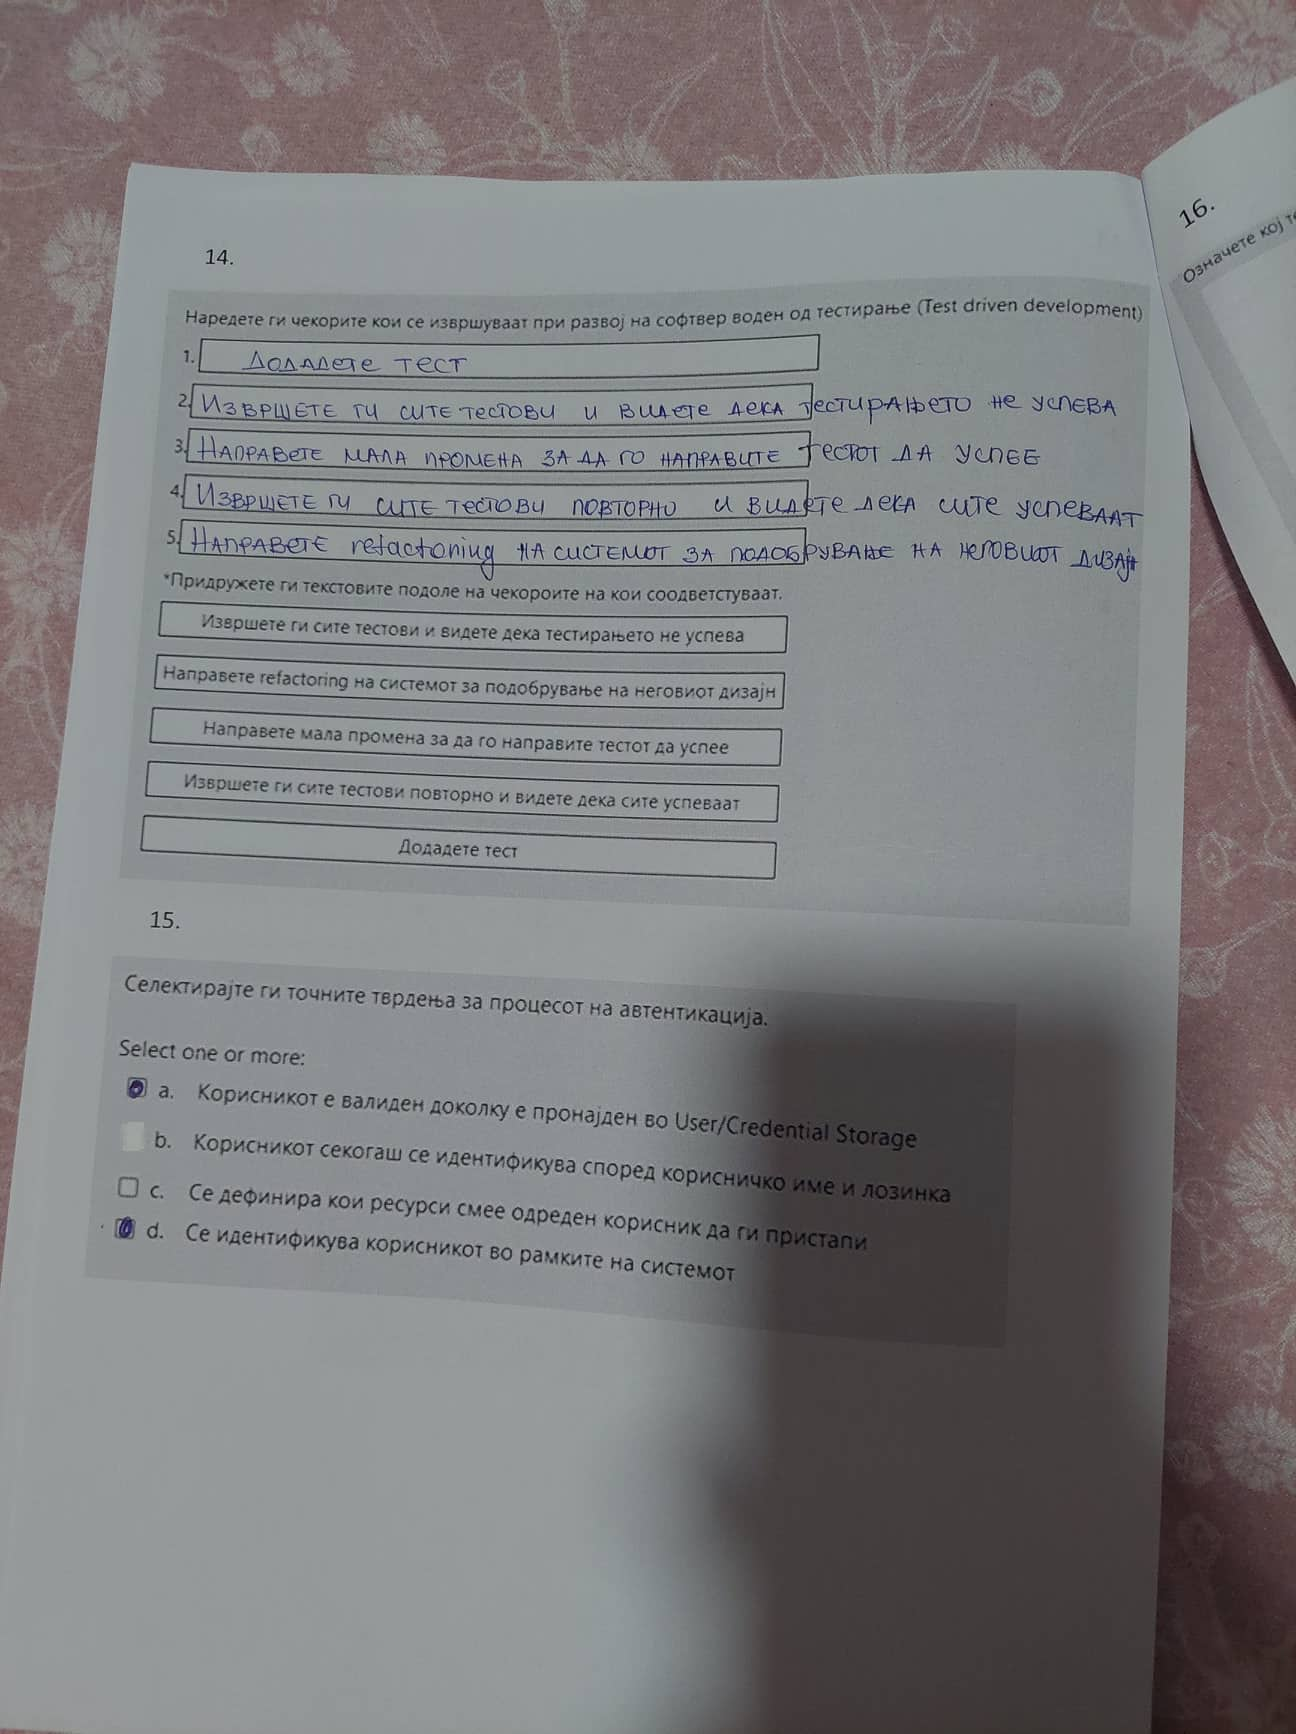 14.
Наредете ги чекорите кои се извршуваат при развој на софтвер воден од тестирање (Test driven development)
1. Додадете тест
2. Извршете ги сите тестови и видете дека тестирањето не успева
3. Направете мала промена за да го направите тестот да успее
4. Извршете ги сите тестови повторно и видете дека сите успеваат
5. Направете refactoring на системот за подобрување на неговиот дизајн
*Придружете ги текстовите подоле на чекороите на кои соодветстуваат.
Извршете ги сите тестови и видете дека тестирањето не успева
Направете refactoring на системот за подобрување на неговиот дизајн
Направете мала промена за да го направите тестот да успее
Извршете ги сите тестови повторно и видете дека сите успеваат
Додадете тест
15.
Селектирајте ги точните тврдења за процесот на автентикација.
Select one or more:
a. Корисникот е валиден доколку е пронајден во User/Credential Storage
b. Корисникот секогаш се идентификува според корисничко име и лозинка
c. Се дефинира кои ресурси смее одреден корисник да ги пристапи
d. Се идентификува корисникот во рамките на системот
16.
Означете кој